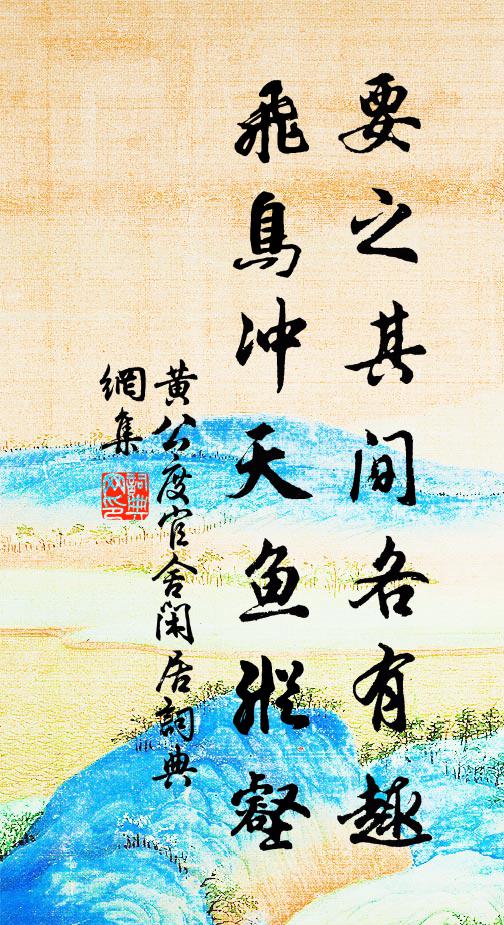 要之其间各有趣
飛鳥冲天鱼縱壑
黄公度官舍闲居詞典
網集
詞典